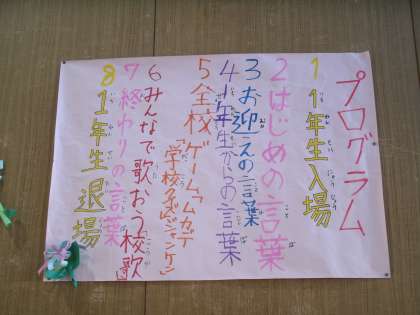 プログラム
1 1年生入場
2 はじめの言葉
3 お迎えの言葉
4 1年生からの言葉
5 全校ゲーム「ムカデ
6 みんなで歌おう「校歌」
7 終わりの言葉
8 1年生退場